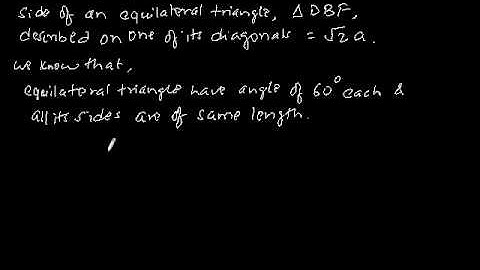 side of an equilateral triangle, Δ DBF,
described on one of its diagonals = √2 a.
we know that,
equilateral triangle have angle of 60° each &
all its sides are of same length.